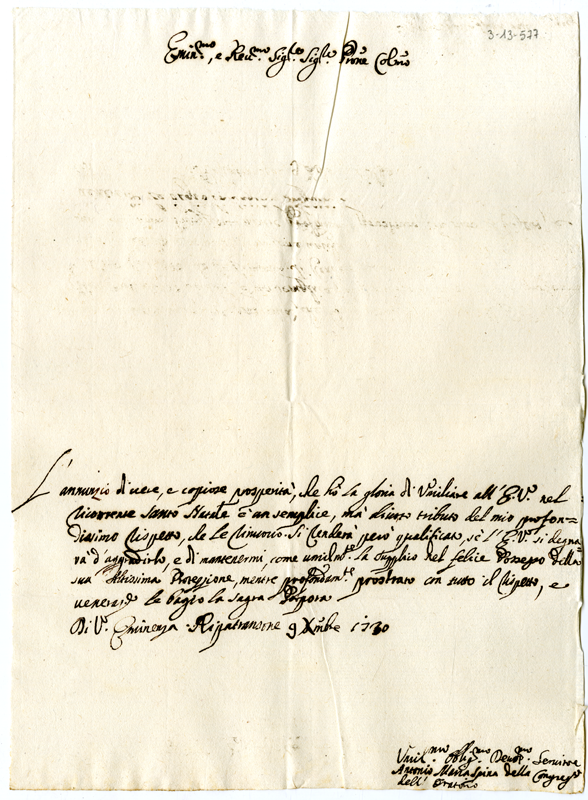 3-13-577
Emin.mo, e Rev.mo Sig.re Sig.re Prone Colmo
L'annunzio di vere, e copiose prosperità, che hò la gloria di Umiliare all'E.V. nel
ricorrente Santo Natale è un semplice, mà divoto tributo del mio profon=
dissimo rispetto, che Le rinuovo. Si renderà però qualificato, se l'E.V. si degne
rà d'aggradirlo, e di mantenermi, come umilm.te la supplico nel felice Possesso della
sua Altissima Protezzione, mentre profondam.te prostrato con tutto il rispetto, e
venerard le bagio la sagra Porpora
Di V. Eminenza Ripatransone 9 Xmbre 1730
Umil.mo Oblig.mo Devot.mo Servitore
Antonio Maria Spina della Congreg.e
dell'Oratorio